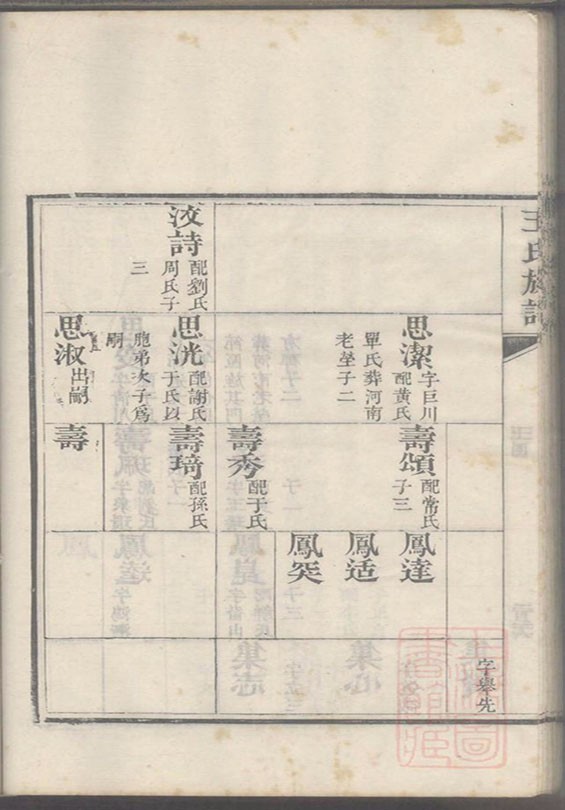 王氏族譜
字舉先
汶詩
配劉氏
周氏子
三
思潔
字巨川
配黃氏
單氏葬河南
老塋子二
思洸
配謝氏
于氏以
胞弟次子爲
嗣
思淑
出嗣
壽頌
配常氏
子三
壽秀
配于氏
壽琦
配孫氏
壽
鳳達
鳳适
鳳突